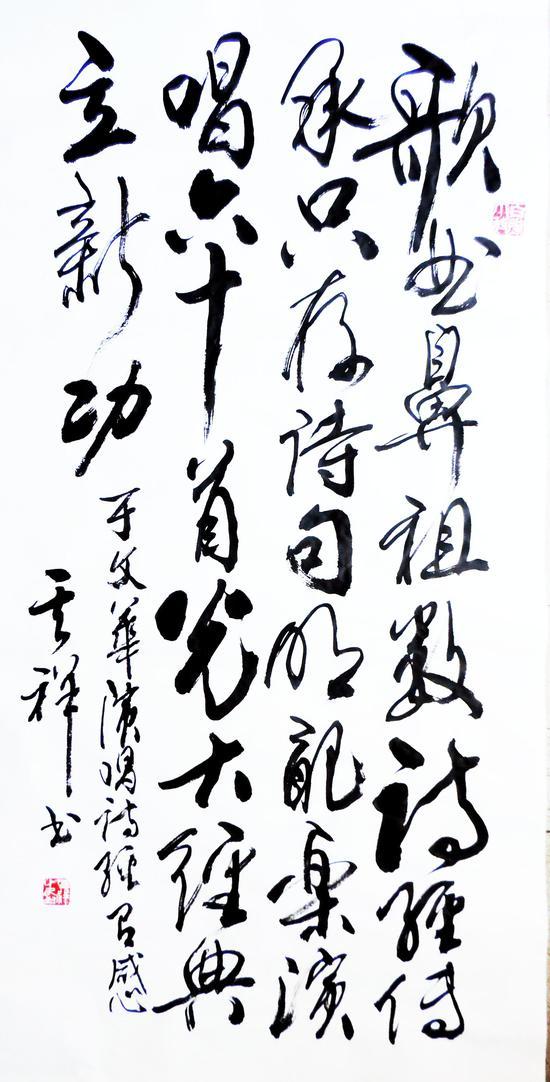 歌曲鼻祖数诗經传
承只存诗句明配樂演
唱六十首光大經典
立新功
于文華演唱诗經有感
云祥书